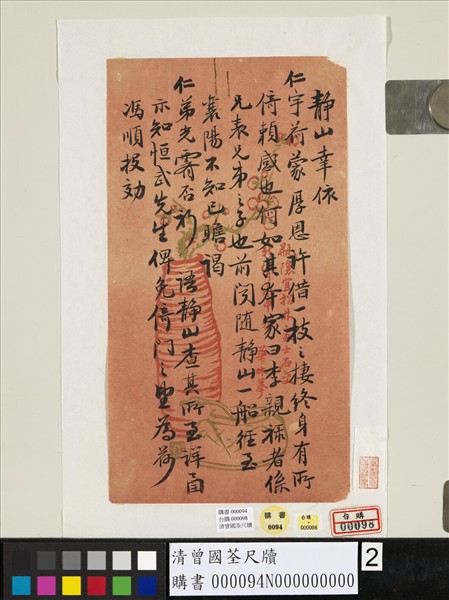 靜山幸依
仁宇荷蒙厚恩許借一枝之棲終身有所
倚賴感也何如其本家曰李親祿者係
兄表兄弟之子也前閔隨靜山一船徑至
襄陽不知已瞻謁
仁弟光霽否祈語靜山查其所至詳函
示知恒武先生俾免倚門之望為荷
馮順投効
購書 000094
台購 000098
清曾國荃尺牘
購書
0094
台購
000098
台購
00098
清曾國荃尺牘
購書 000094N000000000
2